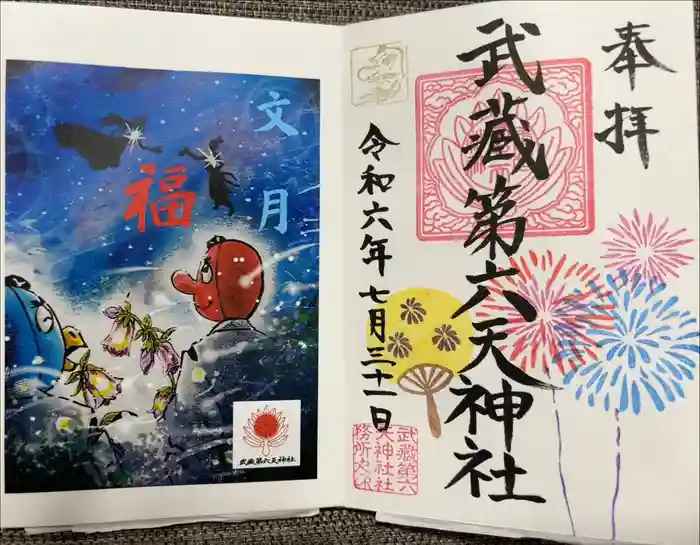 奉拝
武藏第六天神社
令和六年七月三十一日
武藏第六
天神社社
務所之印
文月
福
武藏第六天神社